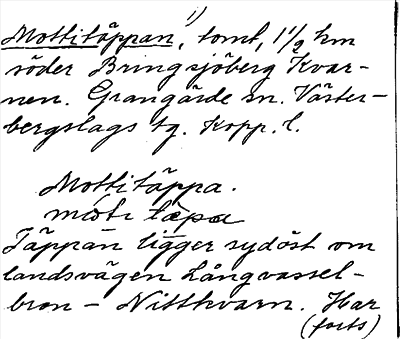 1)
Mottitäppan, tomt, 1 1/2 km
söder Bringsjöberg Kvar-
nen. Grangärde sn. Väster-
bergslags tg. Kopp. l.
Mottitäppa.
täpa
Täppan ligger sydöst om
landsvägen Långvassel-
bron - Nittkvarn. Har
(forts)